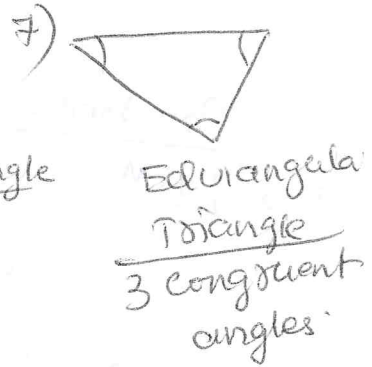 7)
ngle
Equiangula
Triangle
3 congruent
angles.